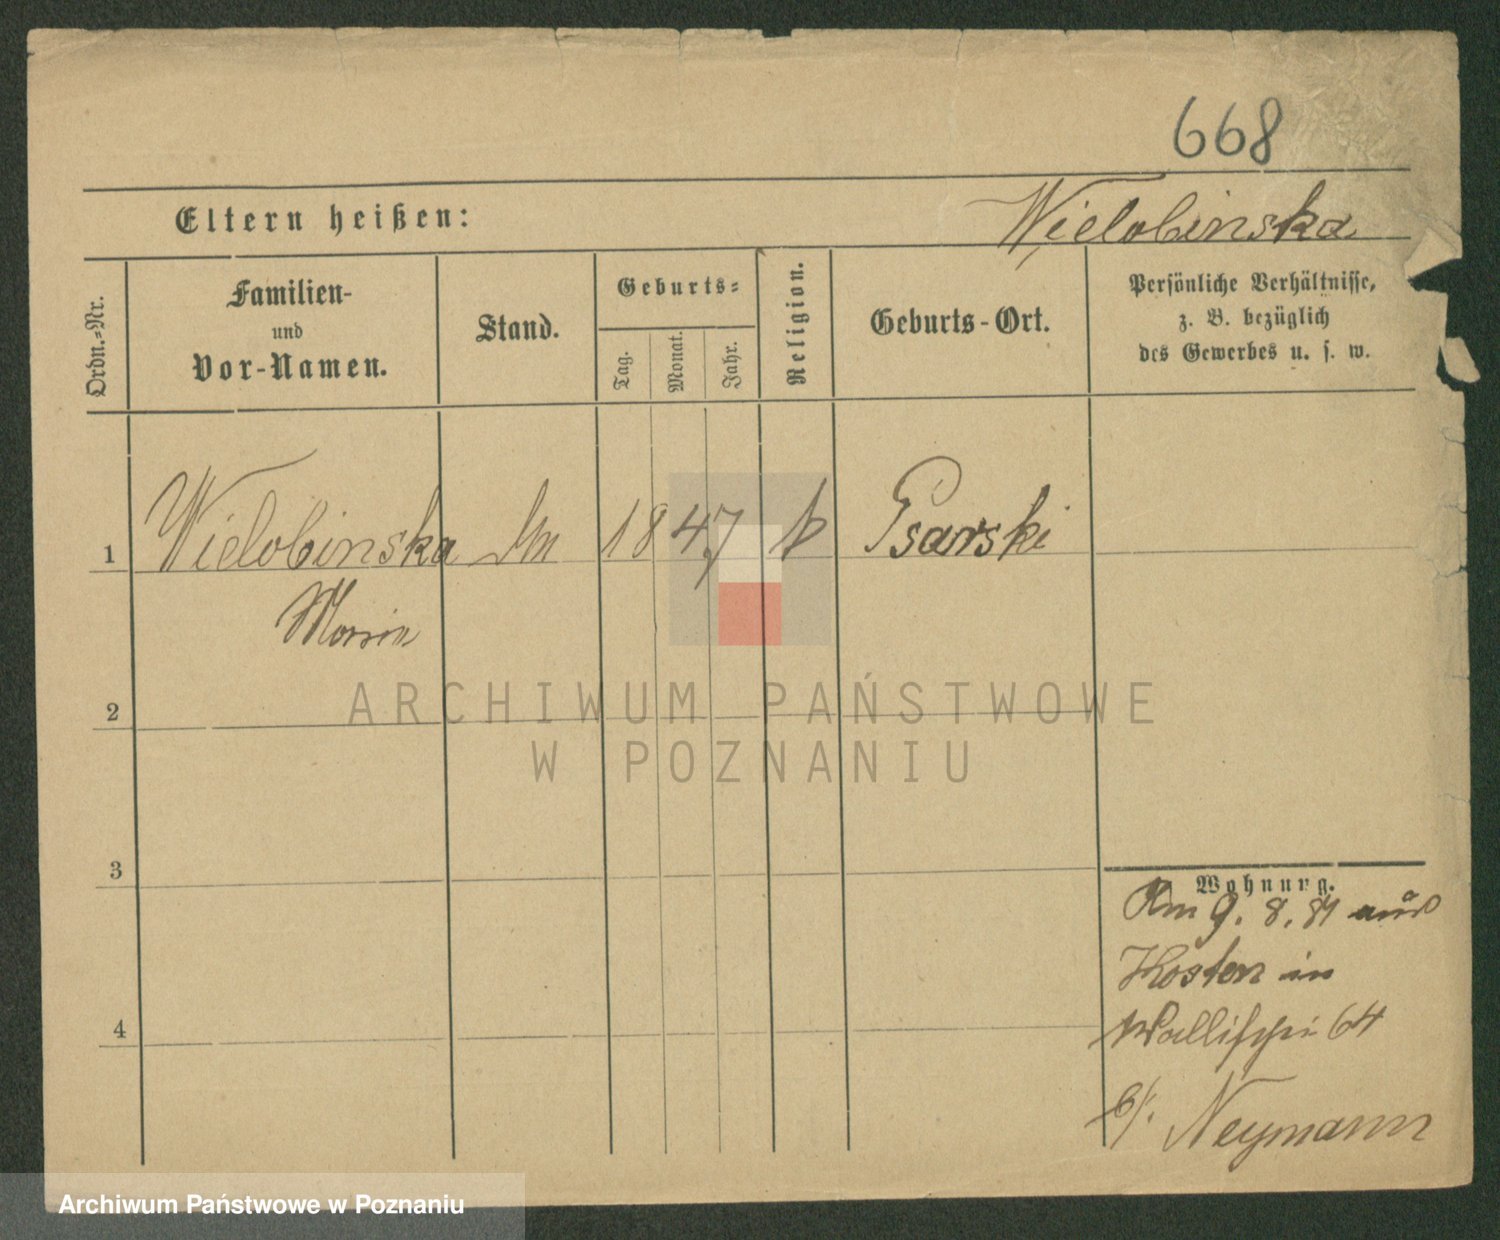 668
Eltern heißen:
Wielobinska
Ordn.-Nr.
Familien-
und
Vor-Namen.
Stand.
Geburts-
Tag.
Monat.
Jahr.
Religion.
Geburts-Ort.
Persönliche Verhältnisse,
z. B. bezüglich
des Gewerbes u. s. w.
1
Wielobinska
1847
Psarski
2
3
4
ARCHIWUM PAŃSTWOWE
W POZNANIU
Wohnung.
9. 8. 81 aus
Kosten in
Wallischei 64
b/. Neymann
Archiwum Państwowe w Poznaniu